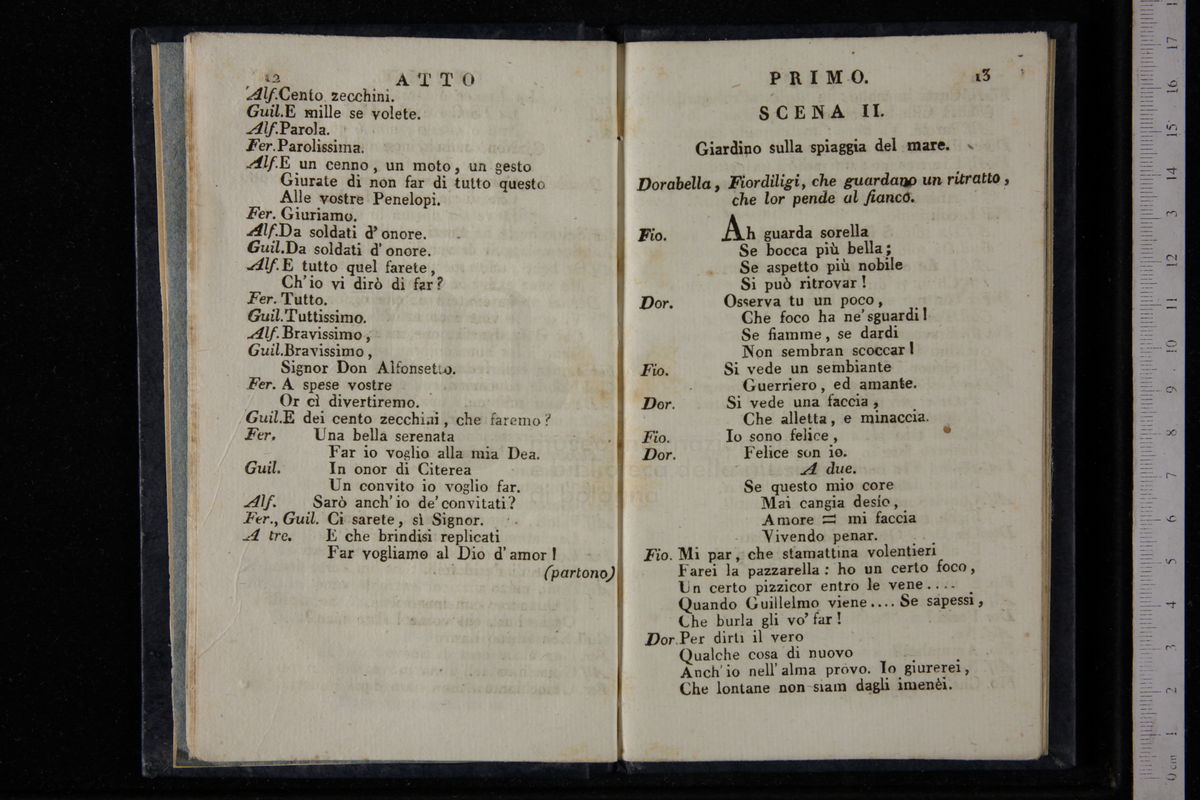 12 ATTO
Alf.Cento zecchini.
Guil.E mille se volete.
Alf.Parola.
Fer.Parolissima.
Alf.E un cenno, un moto, un gesto
Giurate di non far di tutto questo
Alle vostre Penelopi.
Fer. Giuriamo.
Alf.Da soldati d'onore.
Guil.Da soldati d'onore.
Alf.E tutto quel farete,
Ch'io vi dirò di far?
Fer. Tutto.
Guil.Tuttissimo.
Alf.Bravissimo,
Guil.Bravissimo,
Signor Don Alfonsetto.
Fer. A spese vostre
Or ci divertiremo.
Guil.E dei cento zecchini, che faremo?
Fer. Una bella serenata
Far io voglio alla mia Dea.
Guil. In onor di Citerea
Un convito io voglio far.
Alf. Sarò anch'io de'convitati?
Fer., Guil. Ci sarete, sì Signor.
A tre. E che brindisi replicati
Far vogliamo al Dio d'amor!
(partono)
PRIMO. 13
SCENA II.
Giardino sulla spiaggia del mare.
Dorabella, Fiordiligi, che guardano un ritratto,
che lor pende al fianco.
Fio. Ah guarda sorella
Se bocca più bella;
Se aspetto più nobile
Si può ritrovar!
Dor. Osserva tu un poco,
Che foco ha ne'sguardi!
Se fiamme, se dardi
Non sembran scoccar!
Fio. Si vede un sembiante
Guerriero, ed amante.
Dor. Si vede una faccia,
Che alletta, e minaccia.
Fio. Io sono felice,
Dor. Felice son io.
A due.
Se questo mio core
Mai cangia desìo,
Amore = mi faccia
Vivendo penar.
Fio. Mi par, che stamattina volentieri
Farei la pazzarella: ho un certo foco,
Un certo pizzicor entro le vene....
Quando Guillelmo viene.... Se sapessi,
Che burla gli vo' far!
Dor.Per dirti il vero
Qualche cosa di nuovo
Anch'io nell'alma provo. Io giurerei,
Che lontane non siam dagli imenèi.
0 cm 1 2 3 4 5 6 7 8 9 10 11 12 13 14 15 16 17